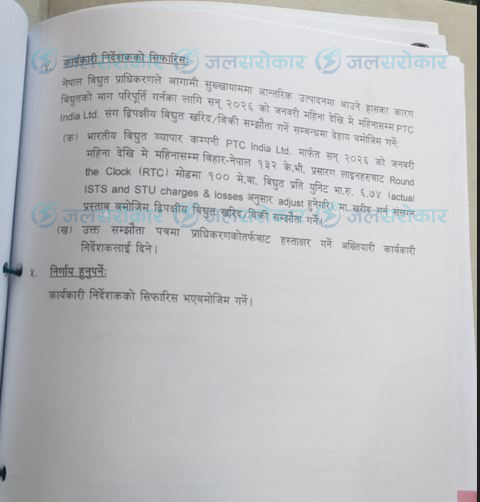 जलसरोकार जलसरोकार जलसरोकार
४. कार्यकारी निर्देशकको सिफारिसः
नेपाल विद्युत प्राधिकरणले आगामी सुख्खायाममा आन्तरिक उत्पादनमा आउने ह्रासका कारण
विद्युतको माग परिपूर्ति गर्नका लागि सन् २०२६ को जनवरी महिना देखि मे महिनासम्म PTC
India Ltd. संग द्विपक्षीय विद्युत खरिद/बिक्री सम्झौता गर्ने सम्बन्धमा देहाय बमोजिम गर्नेः
(क) भारतीय विद्युत व्यापार कम्पनी PTC India Ltd. मार्फत सन् २०२६ को जनवरी
महिना देखि मे महिनासम्म बिहार-नेपाल १३२ के.भी. प्रसारण लाइनहरुबाट Round
the Clock (RTC) मोडमा १०० मे.वा. विद्युत प्रति युनिट भा.रु. ६.७४ (actual
ISTS and STU charges & losses अनुसार adjust हुनेगरि) मा खरीद गर्न संलग्न
प्रस्ताव बमोजिम द्विपक्षीय विद्युत खरिद/बिक्री सम्झौता गर्ने।
जलसरोकार जलसरोकार जलसरोकार
(ख) उक्त सम्झौता पत्रमा प्राधिकरणकोतर्फबाट हस्ताक्षर गर्ने अख्तियारी कार्यकारी
निर्देशकलाई दिने।
५. निर्णय हुनुपर्नेः
कार्यकारी निर्देशकको सिफारिस भएबमोजिम गर्ने।